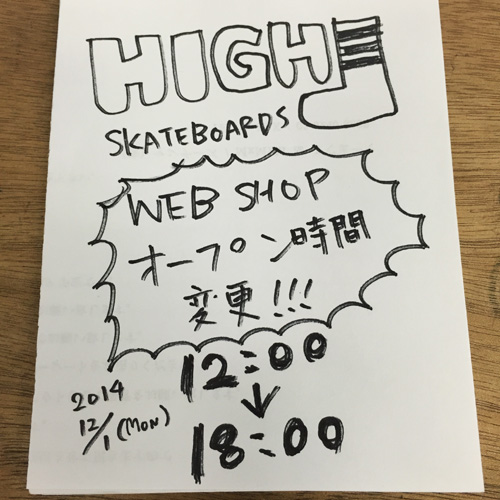 HIGH
SKATEBOARDS
WEB SHOP
オープン時間
変更!!!
12:00
↓
18:00
2014
12/1 (MON)